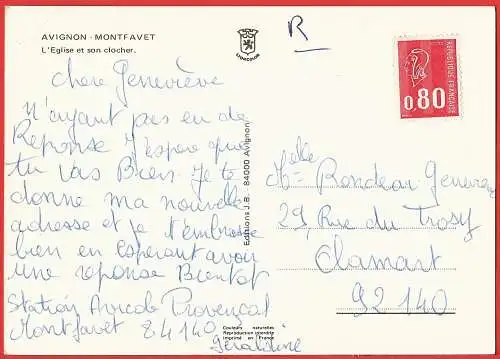 AVIGNON - MONTFAVET
L'Eglise et son clocher.
LYNACOLOR
R
REPUBLIQUE FRANÇAISE
0,80
chere Geneviève
n'ayant pas eu de
Reponse J'espere que
tu vas Bien Je te
donne ma nouvelle
adresse et je t'embrasse
bien en esperant avoir
une reponse Bientot
Station Avicole Provençal
Montfavet 84140
Géraldine
Editions J.B. 84000 Avignon
Melle Rondeau Geneviev
29, Rue du Trosy
Clamart
92 140
Couleurs naturelles
Reproduction interdite
Imprimé en France